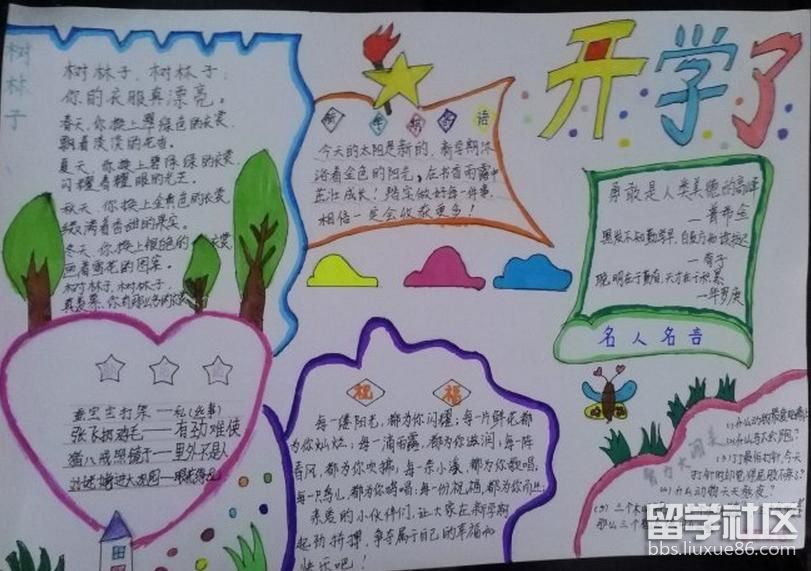 开学了
树林子
树林子,树林子,
你的衣服真漂亮。
春天,你换上翠绿色的衣裳,
飘着淡淡的花香。
夏天,你换上碧绿绿的衣裳,
闪耀着耀眼的光芒。
秋天,你换上金黄色的衣裳,
缀满着香甜的果实。
冬天,你换上银色的衣裳,
画着雪花的图案。
树林子,树林子,
新学期寄语
今天的太阳是新的,新学期沐
浴着金色的阳光,在书香雨露中
茁壮成长!踏实做好每一件事,
相信一定会收获更多!
勇敢是人类美德的高峰
—普希金
黑发不知勤学早,白首方知读书迟
聪明在于勤奋,天才在于积累
—华罗庚
名人名言
蚕宝宝打架——私(丝)事
张飞扔鸡毛——有劲难使
猪八戒照镜子——里外不是人
祝福
每一缕阳光,都为你闪耀;每一片鲜花都
为你灿烂;每一滴雨露,都为你滋润;每一阵
春风,都为你吹拂;每一条小溪,都为你歌唱;
每一只鸟儿,都为你鸣唱;每一份祝福,都为你而
亲爱的小伙伴们,让大家在新学期
起劲拼搏,争夺属于自己的幸福和
快乐吧!
(2)什么书不出版?
(3)丁丁最怕打针,今天
(4)什么动物天天熬夜?
留学社区
bbs.liuxue86.com